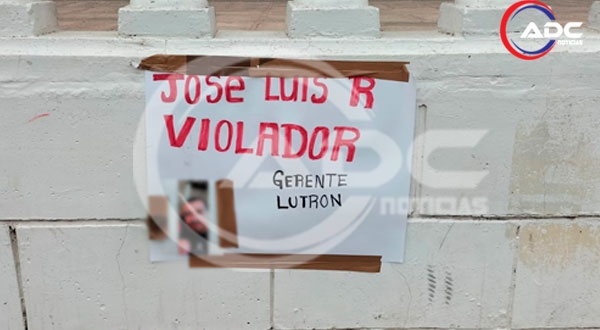 ADC
NOTICIAS
JOSE LUIS R
VIOLADOR
GERENTE
LUTRON
ADC
NOTICIAS